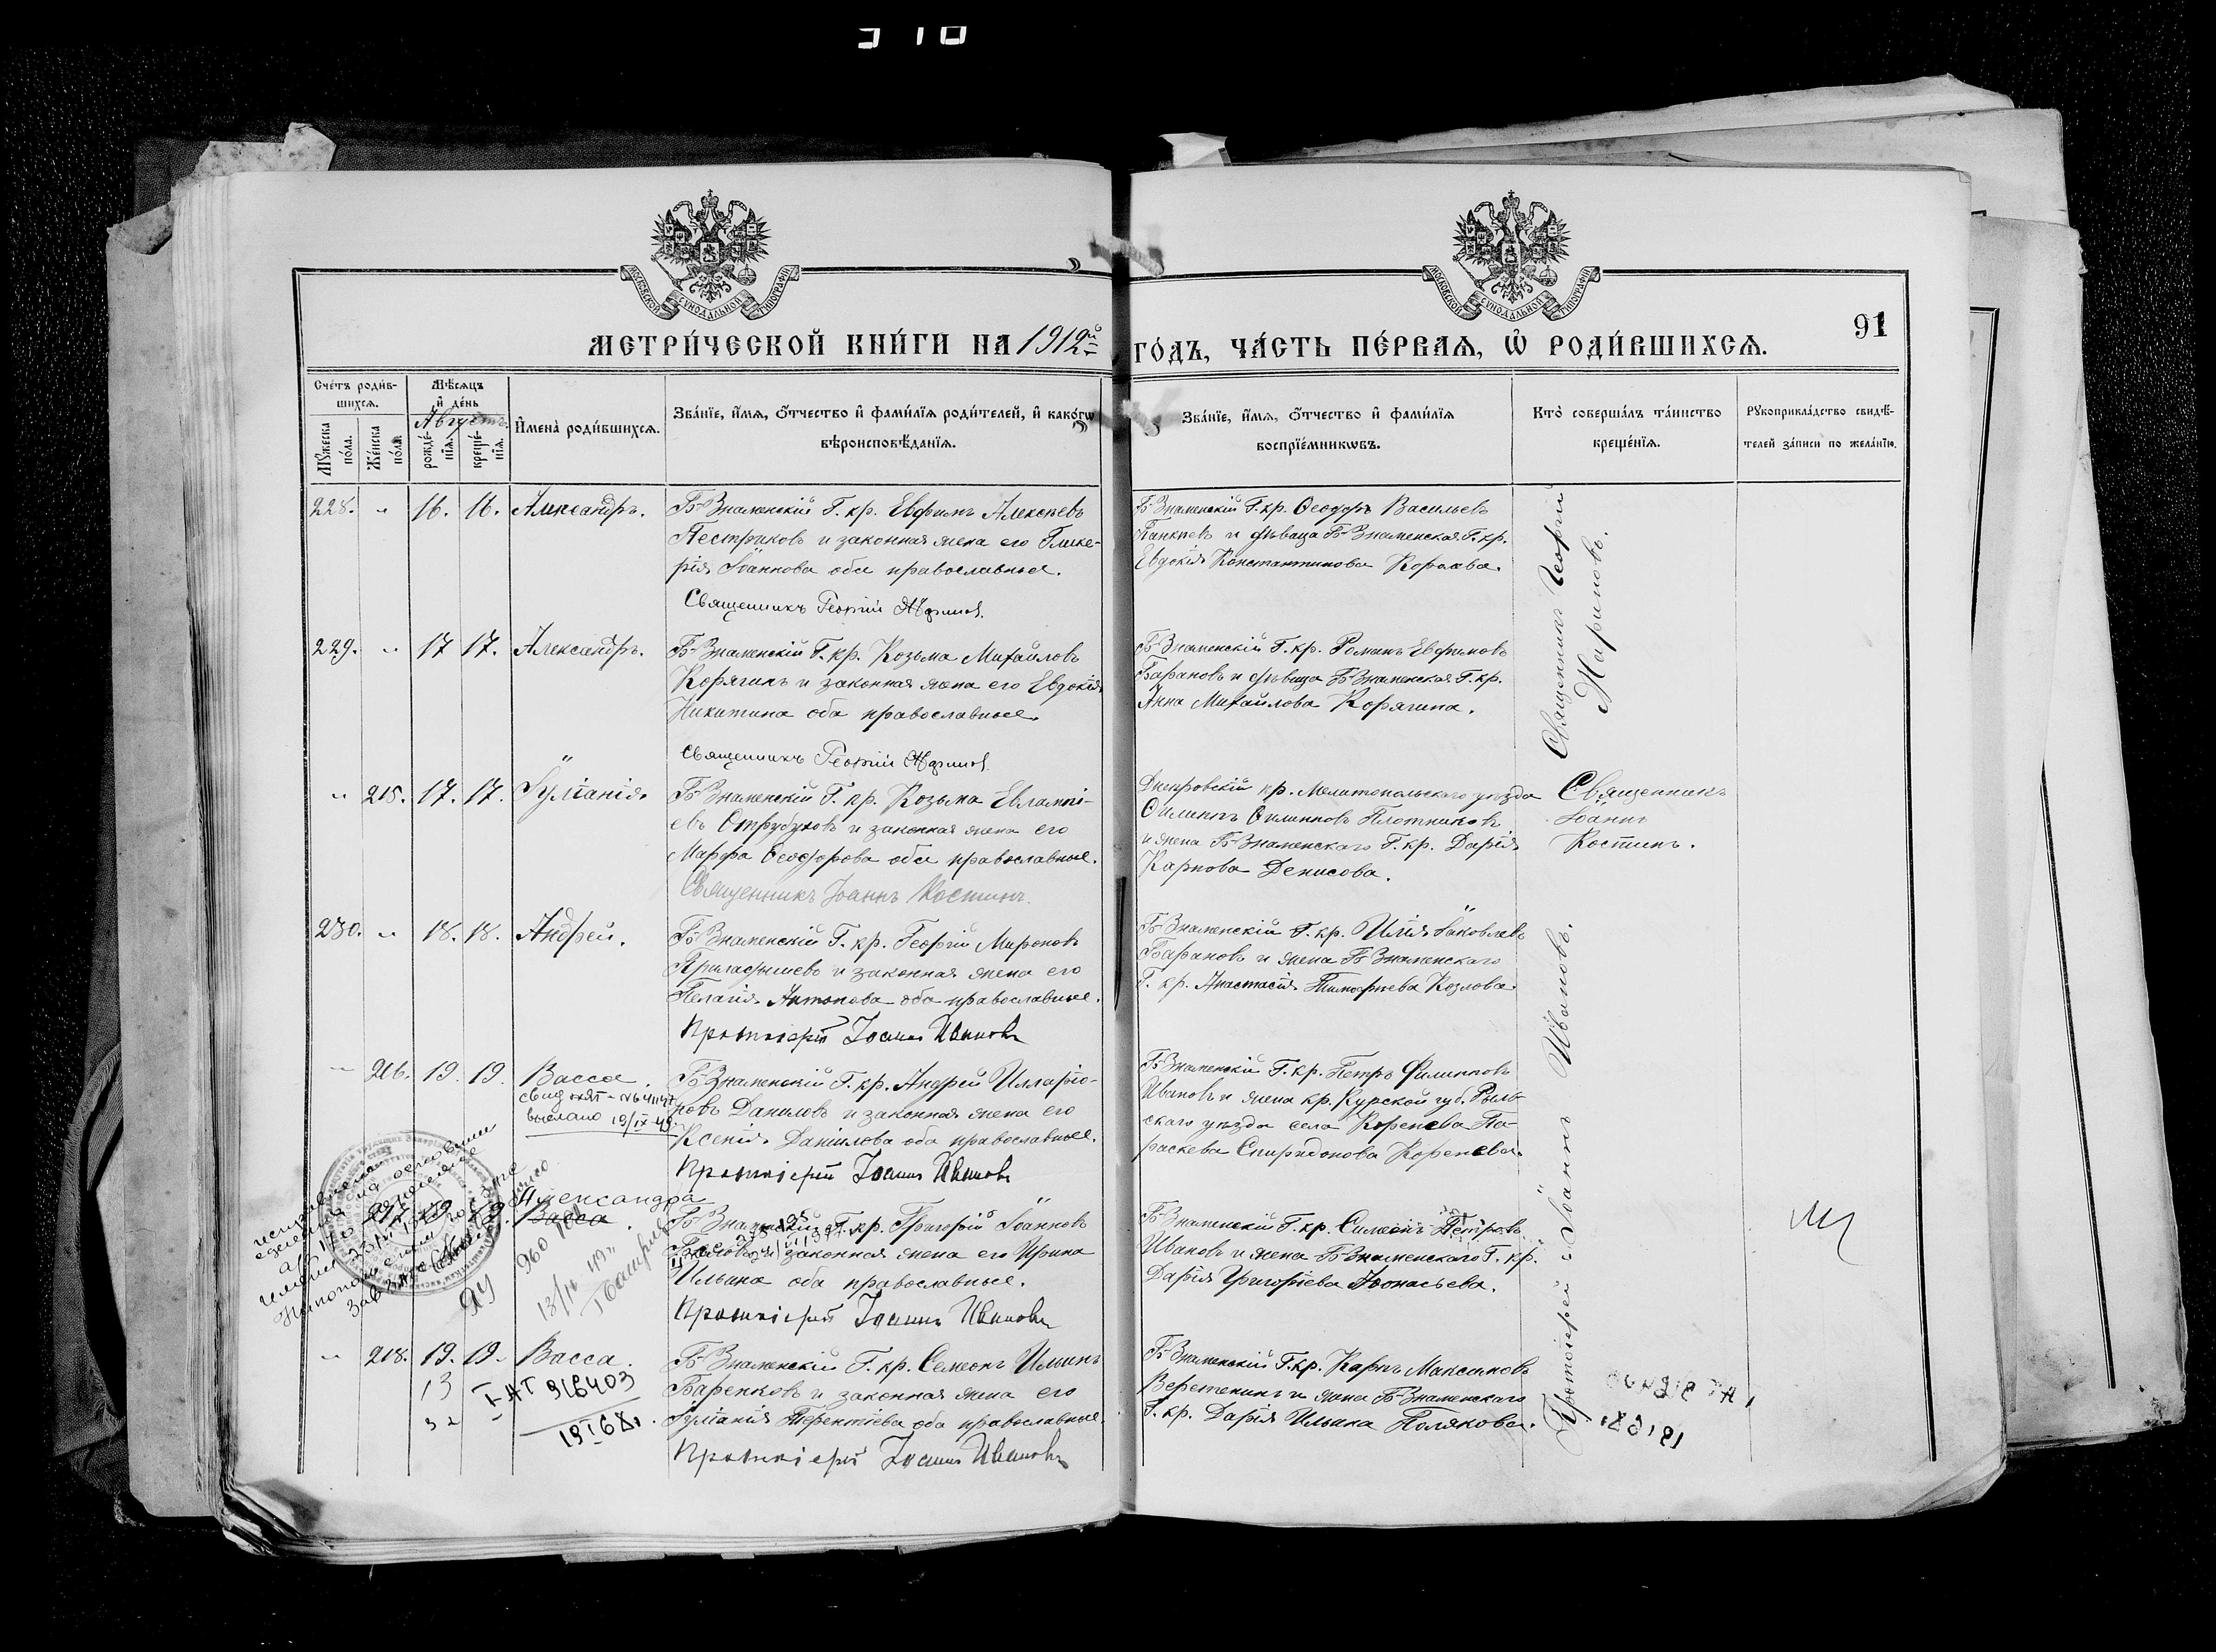 МЕТРИ́ЧЕСКОЙ КНИ́ГИ НА 1912й ГО́ДЪ, ЧА́СТЬ ПЕ́РВАЯ, Ѡ РОДИ́ВШИХСЯ.
91
МОСКОВСКОЙ СѴНОДАЛЬНОЙ ТИПОГРАФІИ
МОСКОВСКОЙ СѴНОДАЛЬНОЙ ТИПОГРАФІИ
Сче́тъ роди́в-
шихся.
Мѣ́сяцъ
и́ де́нь
Августъ.
Мꙋ́жеска по́ла.
Же́нска по́ла.
рожде́-нїя.
креще́-нїя.
И҆мена̀ роди́вшихся.
Зва́нїе, и҆́мя, ѻ҆́тчество и҆ фами́лїя роди́телей, и҆ како́гѡ
вѣроисповѣ́данїя.
Зва́нїе, и҆́мя, ѻ҆́тчество и҆ фами́лїя
воспрїе́мникѡвъ.
Кто̀ соверша́лъ та́инство
креще́нїя.
Рꙋкоприкла́дство свидѣ́-
телей за́писи по жела́нїю.
228. " 16. 16. Александръ.
Б-Знаменскій Г. кр. Евфимъ Алексѣевъ
Пестриковъ и законная жена его Глике-
рія Іоаннова оба православные.
Священникъ Георгій
Б-Знаменскій Г. кр. Ѳеодоръ Васильевъ
Панкѣевъ и дѣвица Б-Знаменская Г. кр.
Евдокія Константинова
Священникъ Георгій
Мариновъ.
229. " 17 17. Александръ.
Б-Знаменскій Г. кр. Козьма Михайловъ
Корягинъ и законная жена его Евдокія
Никитина оба православные.
Священникъ Георгій
Б-Знаменскій Г. кр. Романъ Евфимовъ
Барановъ и дѣвица Б-Знаменская Г. кр.
Анна Михайлова Корягина.
" 215. 17. 17. Іуліанія.
Б-Знаменскій Г. кр. Козьма Евлампі-
евъ Отрубуковъ и законная жена его
Марфа Ѳеодорова оба православные.
Священникъ Іоаннъ Костинъ.
Днепровскій кр. Мелитопольскаго уѣзда
Филиппъ Филипповъ Плотниковъ
и жена Б-Знаменскаго Г. кр. Дарія
Карпова Денисова.
Священникъ
Іоаннъ
Костинъ.
230. " 18. 18. Андрей.
Б-Знаменскій Г. кр. Георгій Мироновъ
и законная жена его
Пелагія Антонова оба православные.
Протоіерей Іоаннъ Ивановъ
Б-Знаменскій Г. кр. Илія Іаковлевъ
Барановъ и жена Б-Знаменскаго
Г. кр. Анастасія Тимофѣева Козлова.
Протоіерей Іоаннъ Ивановъ.
" 216. 19. 19. Васса.
выслано 19/IX-49.
Б-Знаменскій Г. кр. Андрей Илларіо-
новъ Даниловъ и законная жена его
Ксенія Даніилова оба православные.
Протоіерей Іоаннъ Ивановъ
Б-Знаменскій Г. кр. Петръ Филипповъ
Ивановъ и жена кр. Курской губ. Рыль-
скаго уѣзда села Коренева Па-
раскева Спиридонова Коренева.
217. 19 19. Васса.
Александра
Б-Знаменскій Г. кр. Григорій Іоанновъ
и законная жена его Ирина
Ильина оба православные.
Протоіерей Іоаннъ Ивановъ
Б-Знаменскій Г. кр. Симеонъ Петровъ
Ивановъ и жена Б-Знаменскаго Г. кр.
Дарія Григоріева Аѳонасьева.
" 218. 19. 19. Васса.
13
I-АГ 916403
Б-Знаменскій Г. кр. Симеонъ Ильинъ
Баренковъ и законная жена его
Іуліанія Терентіева оба православные.
Протоіерей Іоаннъ Ивановъ
Б-Знаменскій Г. кр. Карпъ Максимовъ
Веретенинъ и жена Б-Знаменскаго
Г. кр. Дарія Ильина Полякова.